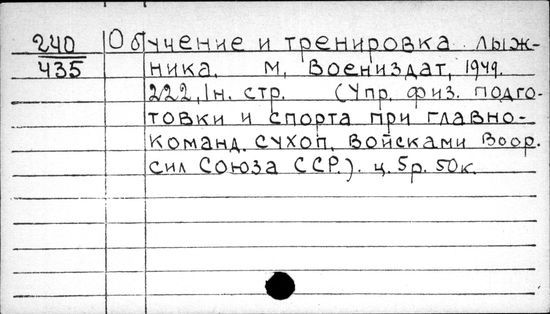 240 Обучение и тренировка лыж-
435 ника. М, Воениздат, 1949.
222, 1н. стр. (Упр. физ. подго-
товки и спорта при главно-
команд. сухоп. войсками Воор.
сил Союза ССР.). ц. 5р. 50к.